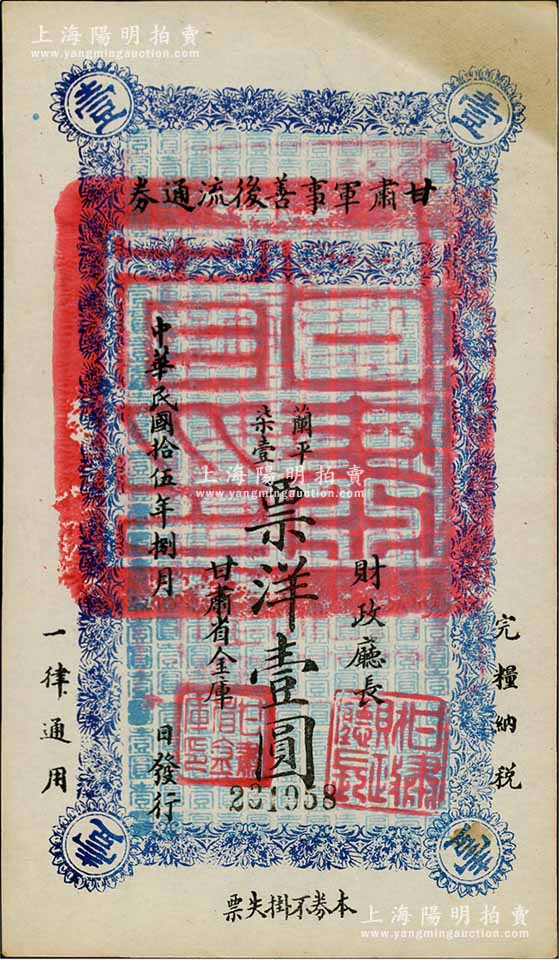 上海陽明拍賣
www.yangmingauction.com
上海陽明拍賣
www.yangmingauction.com
壹
壹
甘肅軍事善後流通券
完糧納稅
財政廳長
蘭平
柒壹
票洋壹圓
甘肅省金庫
中華民國拾伍年捌月 日發行
一律通用
上海陽明拍賣
www.yangmingauction.com
壹
壹
本券不掛失票
上海陽明拍賣
www.yangmingauction.com